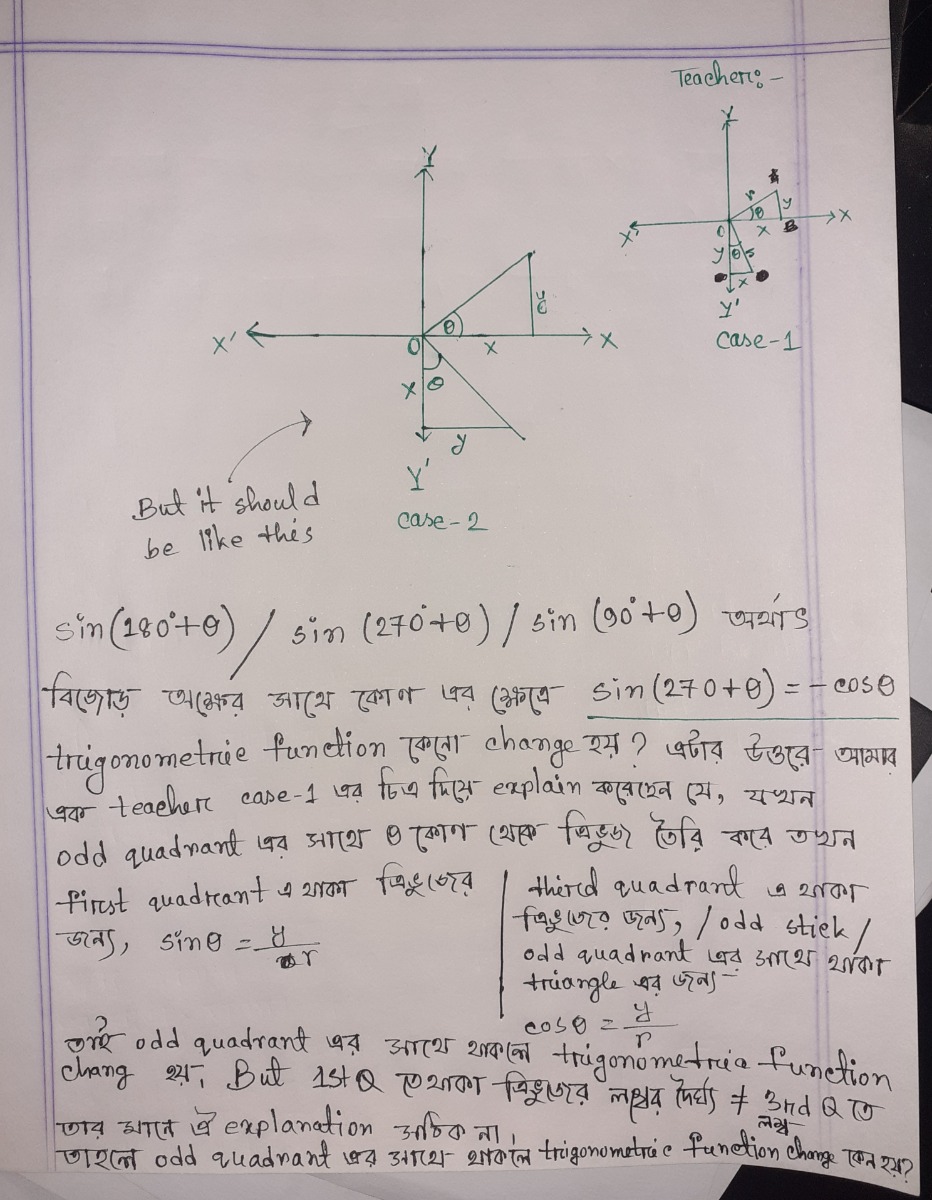 Teacher:-
Y
r
θ
y
X'
O
X
B
X
y
θ
s
x
Y'
case-1
Y
θ
y
X'
O
x
X
x
θ
y
Y'
case-2
But it should
be like this
sin(180°+θ) / sin (270°+θ) / sin (90°+θ) অর্থাৎ
বিজোড় অক্ষের সাথে কোণ এর ক্ষেত্রে sin(270+θ) = -cosθ
trigonometric function কেনো change হয়? এটার উত্তরে আমার
এক teacher case-1 এর চিত্র দিয়ে explain করেছেন যে, যখন
odd quadrant এর সাথে θ কোণ থেকে ত্রিভুজ তৈরি করে তখন
first quadrant এ থাকা ত্রিভুজের
জন্য, sinθ = y/r
third quadrant এ থাকা
ত্রিভুজের জন্য, / odd stick /
odd quadrant এর সাথে থাকা
triangle এর জন্য-
cosθ = y/r
তাই odd quadrant এর সাথে থাকলে trigonometric function
chang হয়। But 1st Q তে থাকা ত্রিভুজের লম্বের দৈর্ঘ্য ≠ 3rd Q তে
লম্ব
তার মানে ঐ explanation সঠিক না।
তাহলে odd quadrant এর সাথে থাকলে trigonometric function change কেন হয়?